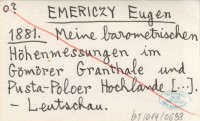 o?
EMERICZY Eugen
1881. Meine barometrischen
Höhenmessungen im
Gömörer Granthale und
Pusta-Poloer Hochlande [...].
- Leutschau.